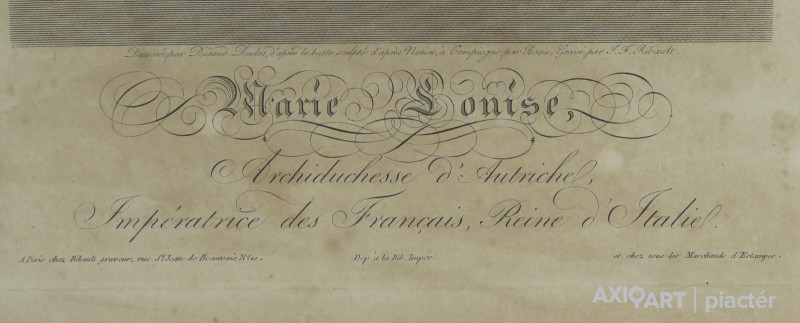 Dessiné par Durand Duclos, d'après le buste sculpté d'après Nature, à Compiegne par Bosio, Gravé par J. F. Ribault.
Marie Louise,
Archiduchesse d'Autriche,
Impératrice des Français, Reine d'Italie.
A Paris chez Ribault graveur, rue St. Jean de Beauvais, N.o 10. Dep. à la Bib. Imper. et chez tous les Marchands d'Estampes.
AXIOART | piactér